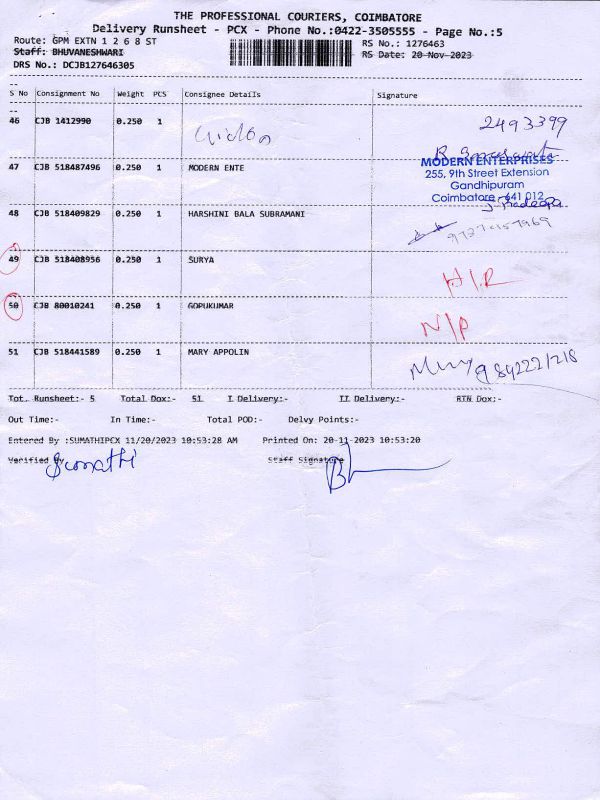 THE PROFESSIONAL COURIERS, COIMBATORE
Delivery Runsheet - PCX - Phone No.:0422-3505555 - Page No.:5
Route: GPM EXTN 1 2 6 8 ST
RS No.: 1276463
Staff: BHUVANESHWARI
RS Date: 20-Nov-2023
DRS No.: DCJB127646305
S No Consignment No Weight PCS Consignee Details Signature
46 CJB 1412990 0.250 1 2493399
47 CJB 518487496 1 0.250 1 MODERN ENTE
MODERN ENTERPRISES
255, 9th Street Extension
Gandhipuram
Coimbatore - 641 012.
48 CJB 518409829 0.250 1 HARSHINI BALA SUBRAMANI
49 CJB 518408956 0.250 1 SURYA H/R
50 CJB 80010241 0.250 1 GOPUKUMAR N/P
51 CJB 518441589 0.250 1 MARY APPOLIN Mary
Tot. Runsheet:- 5 Total Dox:- 51 I Delivery:- II Delivery:- RTN Dox:-
Out Time:- In Time:- Total POD:- Delvy Points:-
Entered By :SUMATHIPCX 11/20/2023 10:53:28 AM Printed On: 20-11-2023 10:53:20
Verified By Sumathi Staff Signature